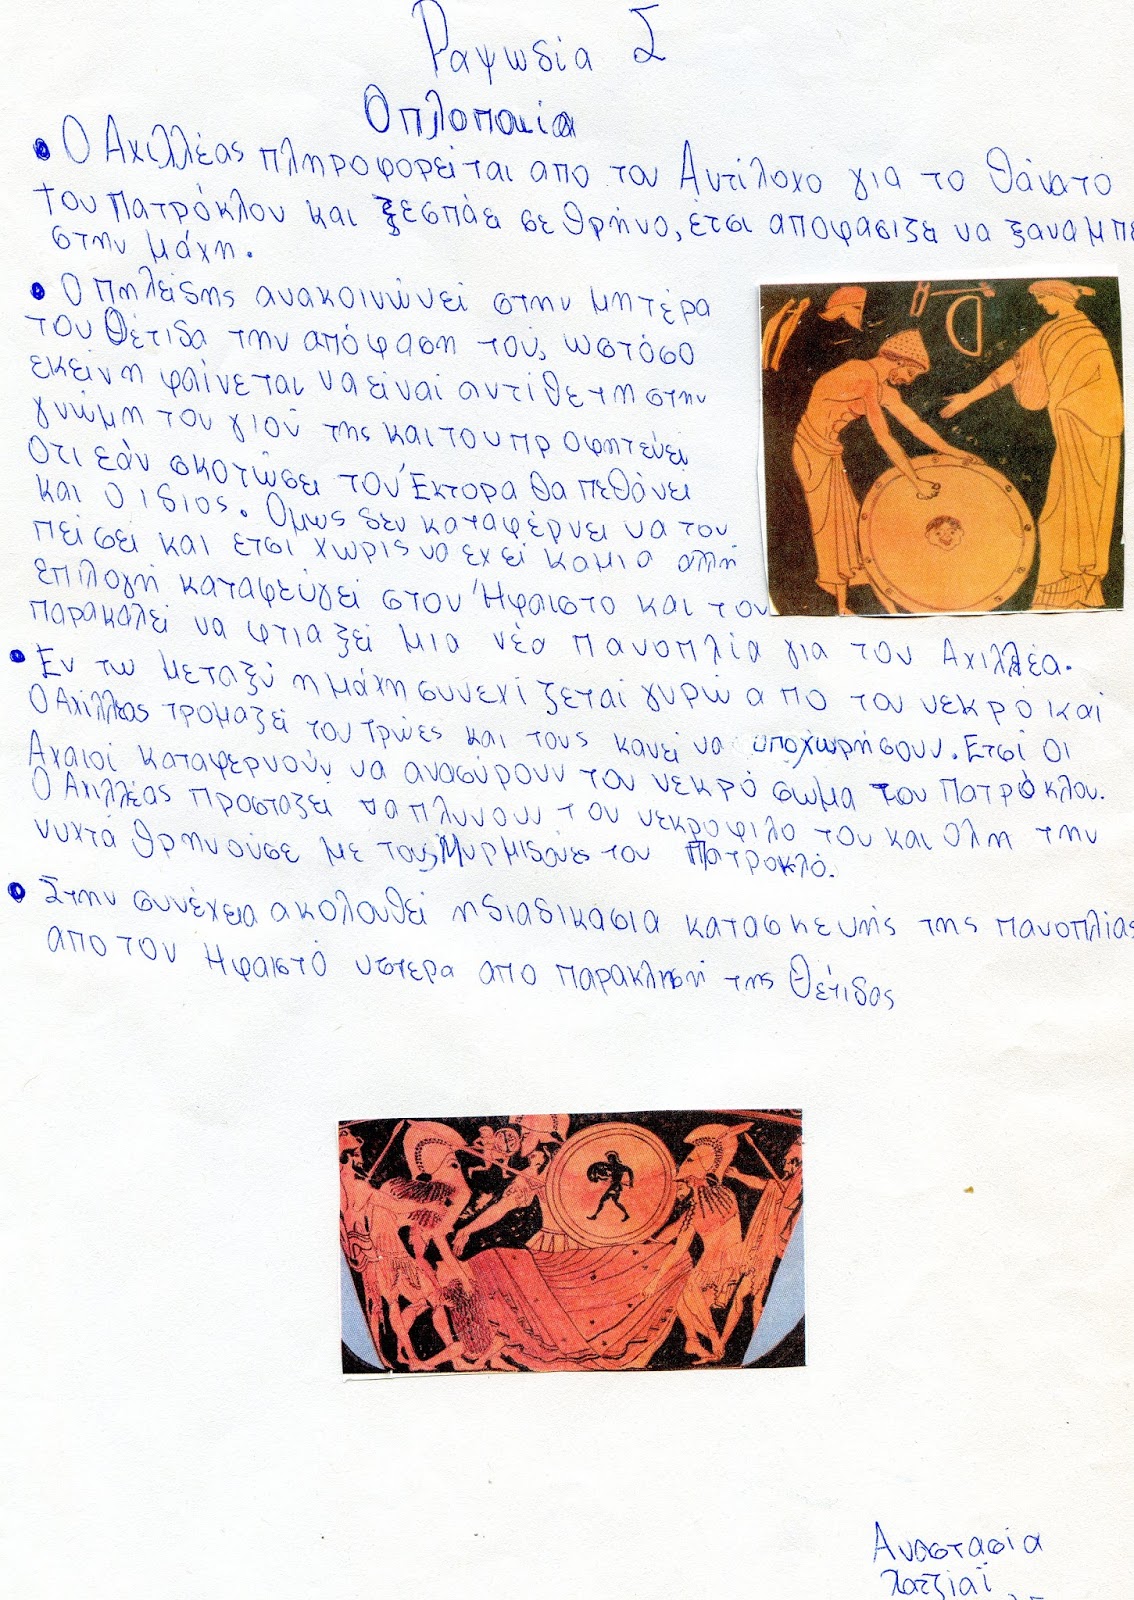 Ραψωδία Σ
Οπλοποιία
• Ο Αχιλλέας πληροφορείται απο τον Αντίλοχο για το θάνατο
του Πατρόκλου και ξεσπάει σε θρήνο, έτσι αποφασιζει να ξαναμπε
στην μάχη.
• Ο Πηλείδης ανακοινώνει στην μητέρα
του Θέτιδα την απόφαση του, ωστόσο
εκείνη φαίνεται να είναι αντίθετη στην
γνώμη του γιού της και του προφητεύει
οτι εάν σκοτώσει τον Έκτορα θα πεθάνει
και ο ιδιος. Ομως δεν καταφέρνει να τον
πείσει και ετσι χωρις να εχει καμια αλλη
επιλογή καταφεύγει στον Ήφαιστο και τον
παρακαλεί να φτιαξει μια νέα πανοπλία για τον Αχιλλέα.
• Εν τω μεταξύ η μάχη συνεχίζεται γυρω απο τον νεκρό και
Ο Αχιλλέας τρομαζει του Τρώες και τους κανει να υποχωρήσουν. Ετσι οι
Αχαιοί καταφερνουν να ανασύρουν τον νεκρό σωμα του Πατρόκλου.
Ο Αχιλλέας προσταζει να πλυνουν τον νεκροφιλο του και ολη την
νυχτα θρηνούσε με τους Μυρμιδόνες τον Πατροκλό.
• Στην συνέχεια ακολουθεί η διαδικασια κατασκευής της πανοπλίας
απο τον Ηφαιστο υστερα απο παρακλησή της Θέτιδος
Αναστασία
Χατζιαϊ